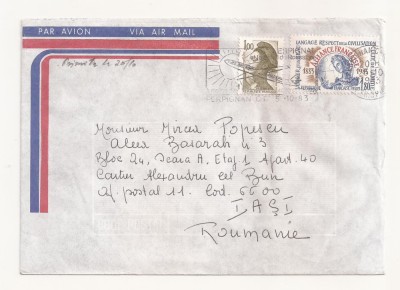 PAR AVION
VIA AIR MAIL
1,00
LANGAGE RESPECT DE LA CIVILISATION
ALLIANCE FRANÇAISE
1883
1983
PERPIGNAN
Monsieur Mircea Popescu
Aleea Basarab n 3
Bloc 24, Scara A, Etaj 1 Apart. 40
Cartier Alexandru cel Bun
of. postal 11. Cod. 6600
IAŞI
Roumanie